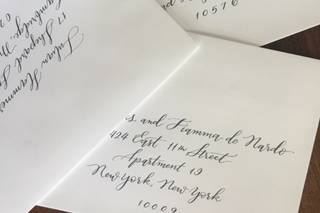 10576
17 Shepard
s. and Fiamma de Nardo
424 East 11th Street
Apartment 19
New York, New York
10009